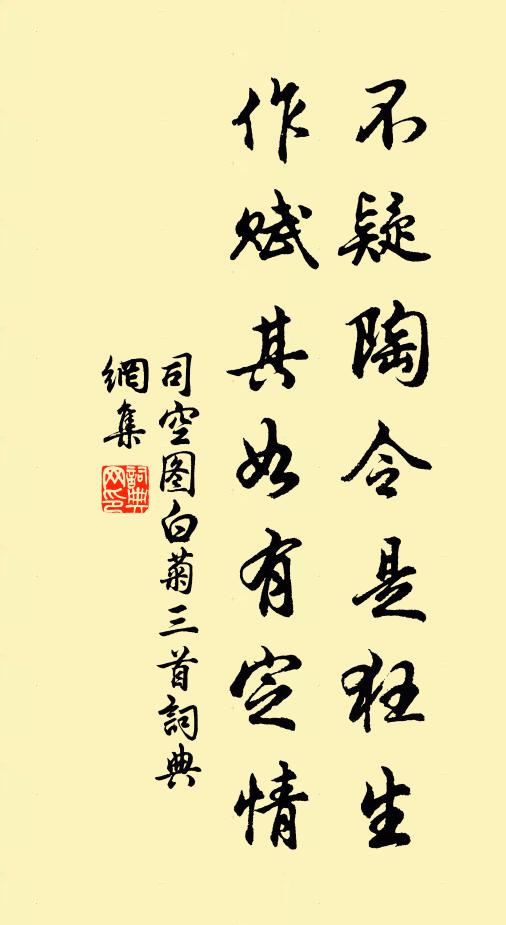 不疑陶令是狂生
作赋其如有定情
司空图白菊三首詞典
網集
詞典
网印